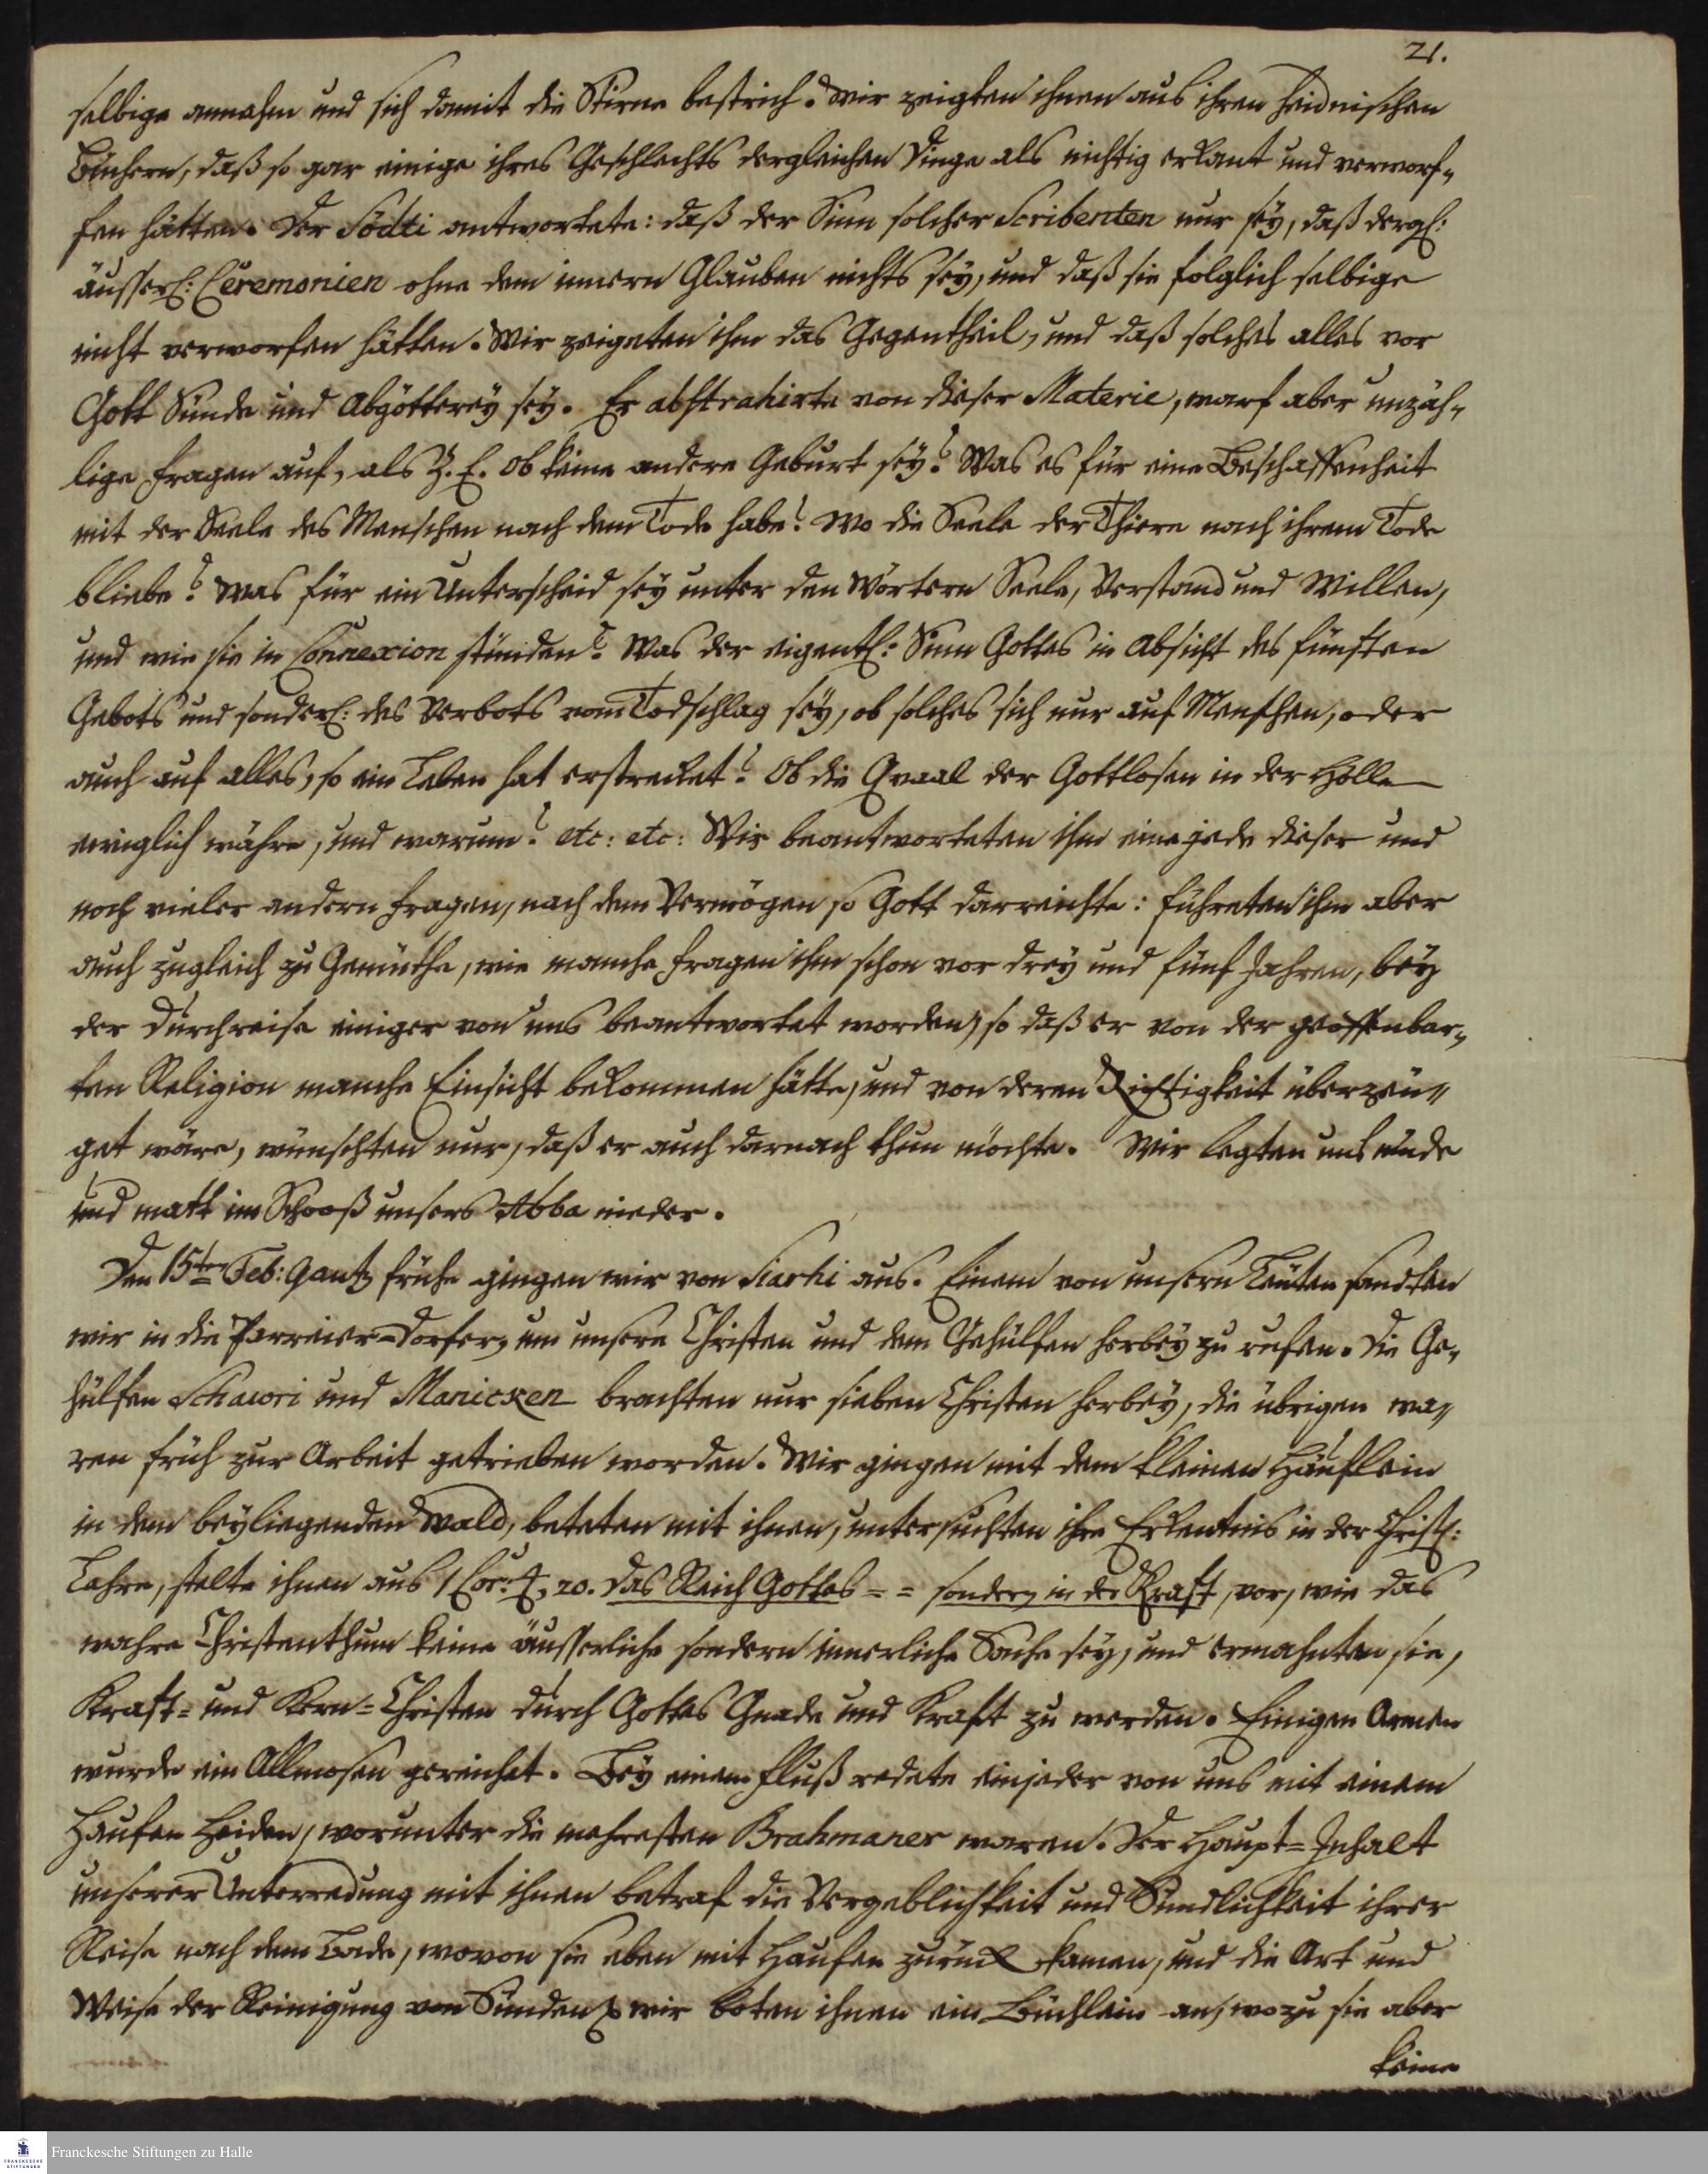 21.
selbige annahm und sich damit die Stirne bestrich. Wir zeigten ihnen aus ihren heidnischen
Büchern, daß so gar einige ihres Geschlechts dergleichen Dinge als nichtig erkant und verworf-
fen hätten. Der Södti antwortete: daß der Sinn solcher Scribenten nur sey, daß dergl:
äusserl: Ceremonien ohne dem innern Glauben nichts sey, und daß sie folglich selbige
nicht verworfen hätten. Wir zeigeten ihm das Gegentheil, und daß solches alles vor
Gott Sünde und Abgötterey sey. Er abstrahirte von dieser Materie, warf aber unzäh-
lige Fragen auf, als Z. E. Ob keine andere Geburt sey? Was es für eine Beschaffenheit
mit der Seele des Menschen nach dem Tode habe? Wo die Seele der Thiere nach ihrem Tode
bliebe? Was für ein Unterscheid sey unter den Wörtern Seele, Verstand und Willen,
und wie sie in Connexion stünden? Was der eigentl: Sinn Gottes in Absicht des fünften
Gebots und sonderl: des Verbots vom Todschlag sey, ob solches sich nur auf Menschen, oder
auch auf alles, so ein Leben hat erstrecket? Ob die Qvaal der Gottlosen in der Hölle
ewiglich währe, und warum? etc: etc: Wir beantworteten ihm eine jede dieser und
noch vieler andern Fragen, nach dem Vermögen so Gott darreichte: führeten ihm aber
auch zugleich zu Gemüthe, wie manche Fragen ihm schon vor drey und fünf Jahren, bey
der Durchreise einiger von uns beantwortet worden, so daß er von der geoffenbar-
ten Religion manche Einsicht bekommen hätte, und von deren Richtigkeit überzeu-
get wäre, wünschten nur, daß er auch darnach thun möchte. Wir legten uns müde
und matt im Schooß unsers Abba nieder.
Den 15ten Feb: Gantz frühe gingen wir von Siarhi aus. Einem von unsern Leuten sandten
wir in die Parreier-Dorfer, um unsere Christen und dem Gehülfen herbey zu rufen. Die Ge-
hülfen Schawri und Manicken brachten nur sieben Christen herbey, die übrigen wa-
ren früh zur Arbeit getrieben worden. Wir gingen mit dem kleinen Häuflein
in dem beyliegenden Wald, beteten mit ihnen, untersuchten ihre Erkentnis in der Christl:
Lehre, stelte ihnen aus 1 Cor: 4, 20. Das Reich Gottes = = sondern in der Kraft, vor, wie das
wahre Christenthum keine äusserliche sondern innerliche Sache sey, und ermahnten sie,
Kraft- und Kern-Christen durch Gottes Gnade und Kraft zu werden. Einigen Armen
wurde ein Allmosen gereichet. Bey einem Fluß redete ein jeder von uns mit einem
Haufen Heiden, worunter die mehresten Brahmaner waren. Der Haupt-Inhalt
unserer Unterredung mit ihnen betraf die Vergeblichkeit und Sündlichkeit ihrer
Reise nach dem Bade, wovon sie eben mit Haufen zurück kamen, und die Art und
Weise der Reinigung von Sünden wir boten ihnen ein Büchlein an, wozu sie aber
keine
Franckesche Stiftungen zu Halle
FRANCKESCHE
STIFTUNGEN